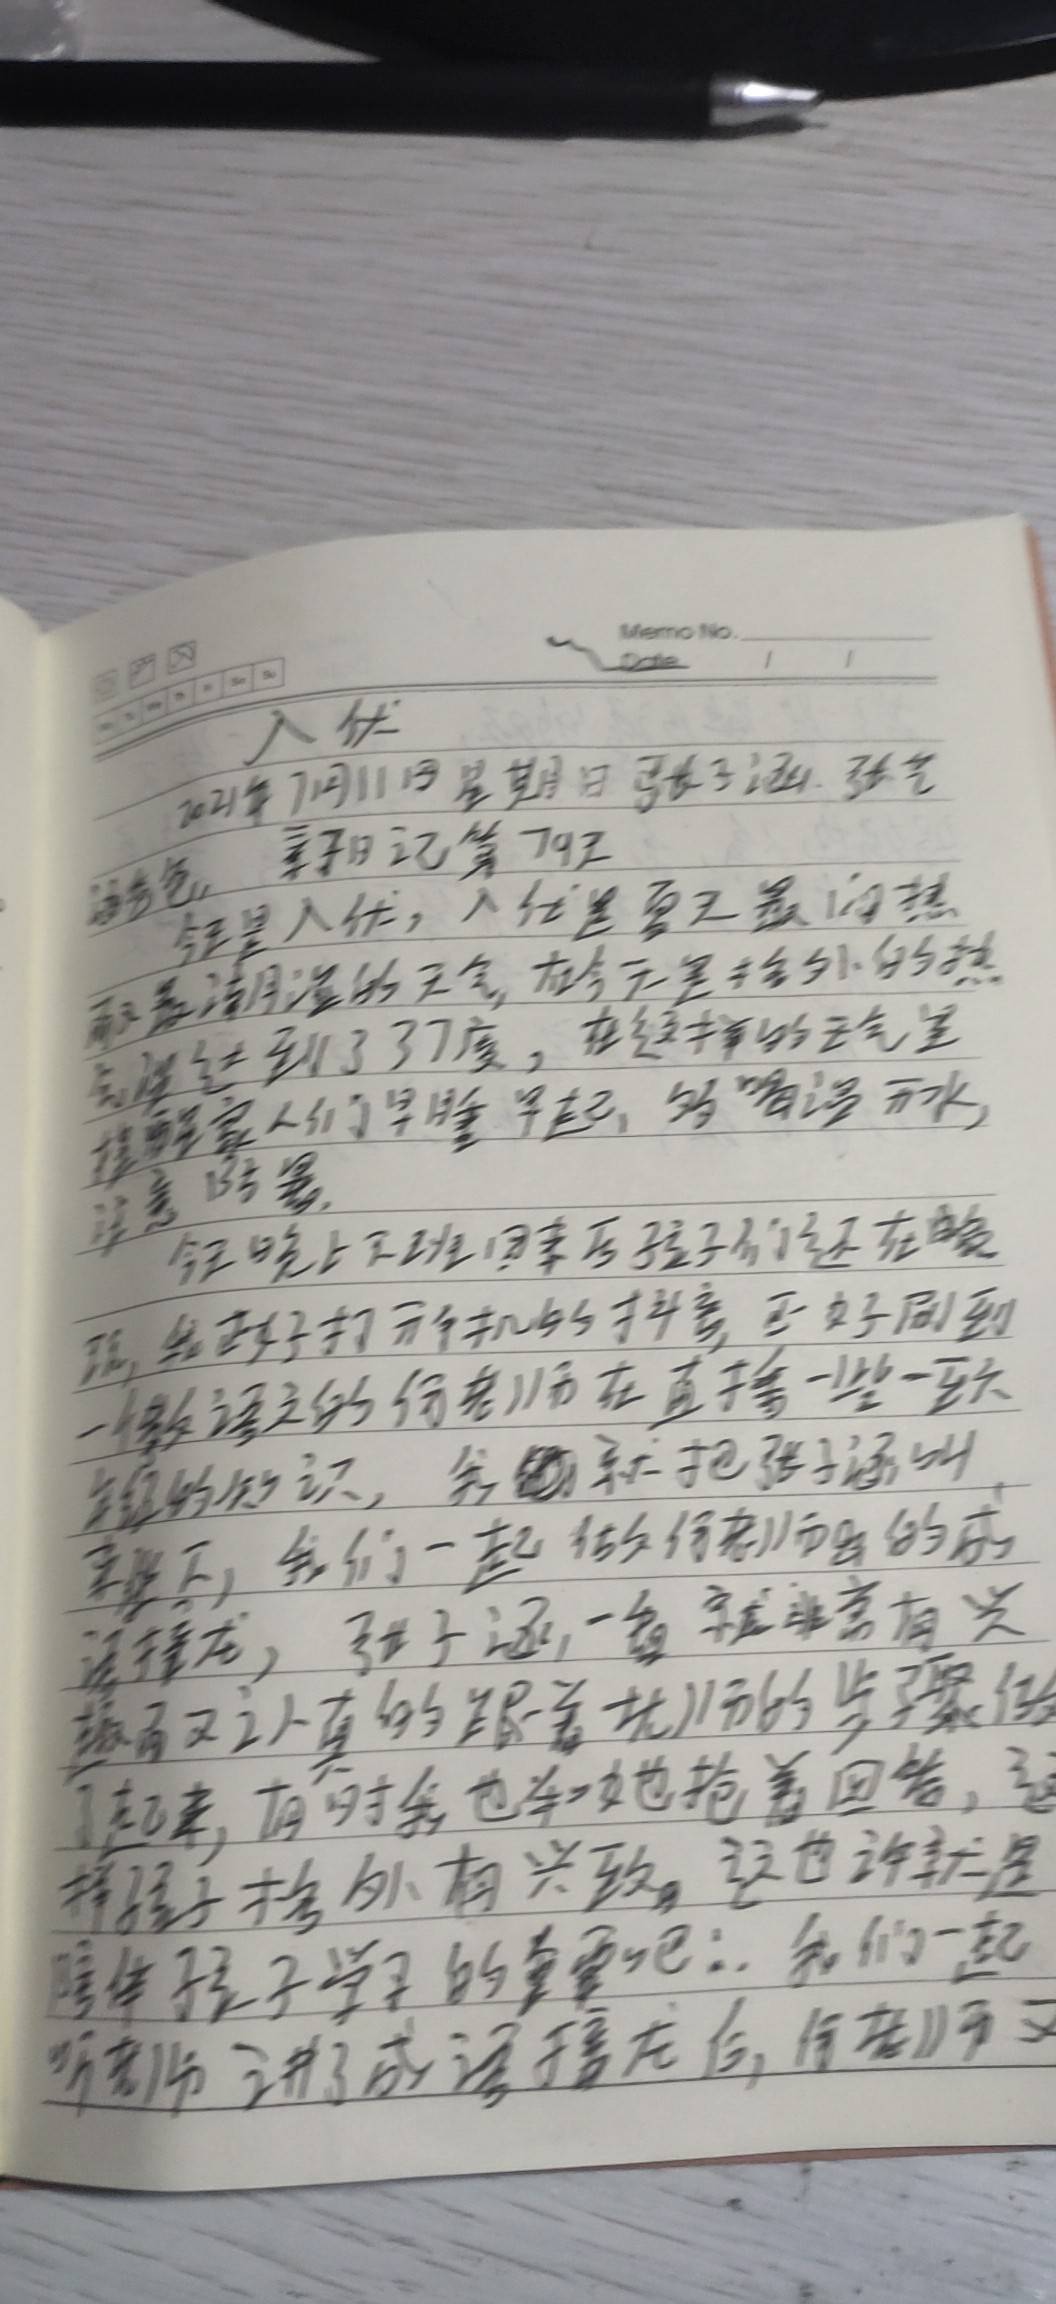 Memo No.
Date / /
入伏
2021年7月11日 星期日 张子涵.张艺
涵爸爸, 亲子日记第79天
今天是入伏,入伏是夏天最闷热
而又最潮湿的天气,在今天是格外的热
气温达到了37度,在这样的天气里
提醒家人们早睡早起,多喝温开水,
注意防暑.
今天晚上下班回来后孩子们还在
玩,我正好打开手机的抖音,正好刷到
一位教语文的何老师在直播一些
的知识,我就把张子涵叫
来坐下,我们一起做何老师出的成
语接龙,张子涵一看就非常有兴
趣而又认真的跟着老师的步骤做
了起来,有时我也和她抢着回答,这
样孩子格外有兴致。这也许就是
陪伴孩子学习的重要吧:.我们一起
听老师讲了成语接龙后,何老师又